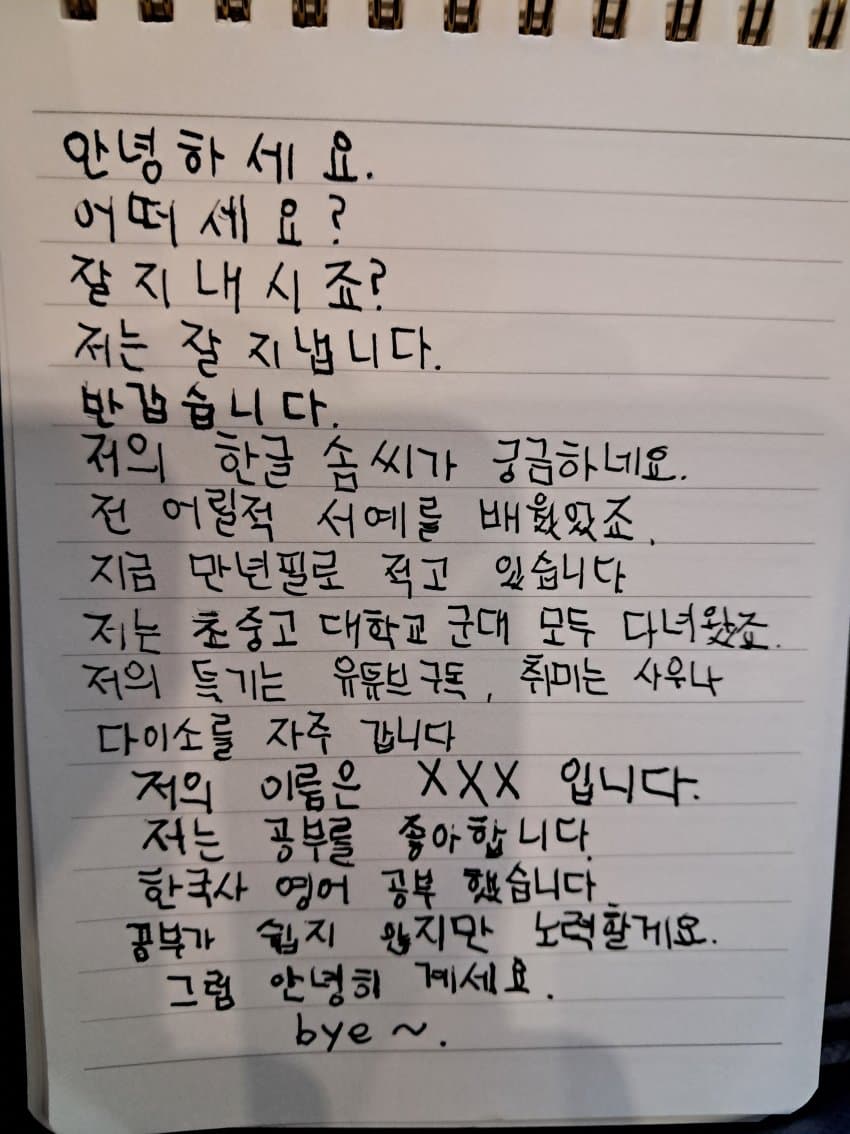 안녕하세요.
어떠세요?
잘 지내시죠?
저는 잘 지냅니다.
반갑습니다.
저의 한글 솜씨가 궁금하네요.
전 어릴적 서예를 배웠었죠.
지금 만년필로 적고 있습니다
저는 초중고 대학교 군대 모두 다녀왔죠.
저의 특기는 유튜브 구독, 취미는 사우나
다이소를 자주 갑니다
저의 이름은 XXX 입니다.
저는 공부를 좋아합니다.
한국사 영어 공부 했습니다
공부가 쉽지 않지만 노력할게요.
그럼 안녕히 계세요.
bye ~.